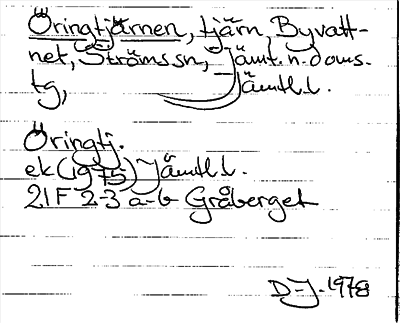 Öringtjärnen, tjärn, Byvatt-
net, Ströms sn, Jämt. n. doms.
tg, Jämtl.l.
Öringtj.
ek (1975) Jämtl.l.
21F 2-3 a-b Gråberget
D-J. 1978